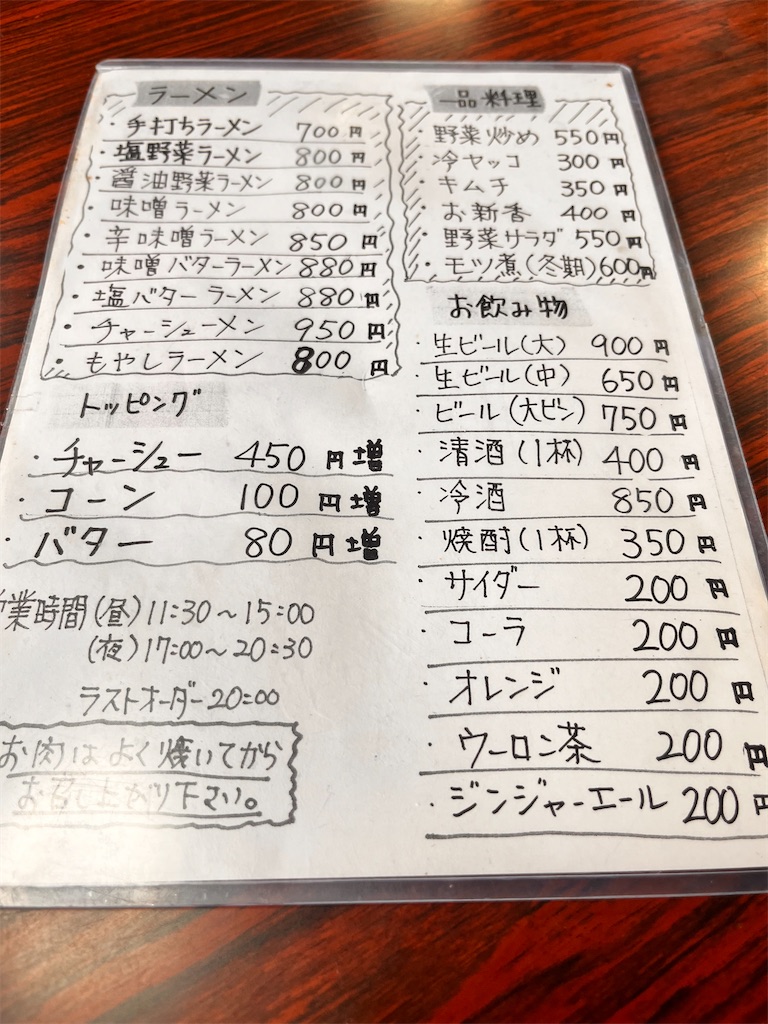 ラーメン
・手打ちラーメン 700円
・塩野菜ラーメン 800円
・醤油野菜ラーメン 800円
・味噌ラーメン 800円
・辛味噌ラーメン 850円
・味噌バターラーメン 880円
・塩バターラーメン 880円
・チャーシューメン 950円
・もやしラーメン 800円
トッピング
・チャーシュー 450円増
・コーン 100円増
・バター 80円増
営業時間(昼)11:30～15:00
(夜)17:00～20:30
ラストオーダー20:00
お肉はよく焼いてから
お召し上がり下さい。
一品料理
・野菜炒め 550円
・冷ヤッコ 300円
・キムチ 350円
・お新香 400円
・野菜サラダ 550円
・モツ煮(冬期)600円
お飲み物
・生ビール(大) 900円
・生ビール(中) 650円
・ビール(大ビン) 750円
・清酒(1杯) 400円
・冷酒 850円
・焼酎(1杯) 350円
・サイダー 200円
・コーラ 200円
・オレンジ 200円
・ウーロン茶 200円
・ジンジャーエール 200円